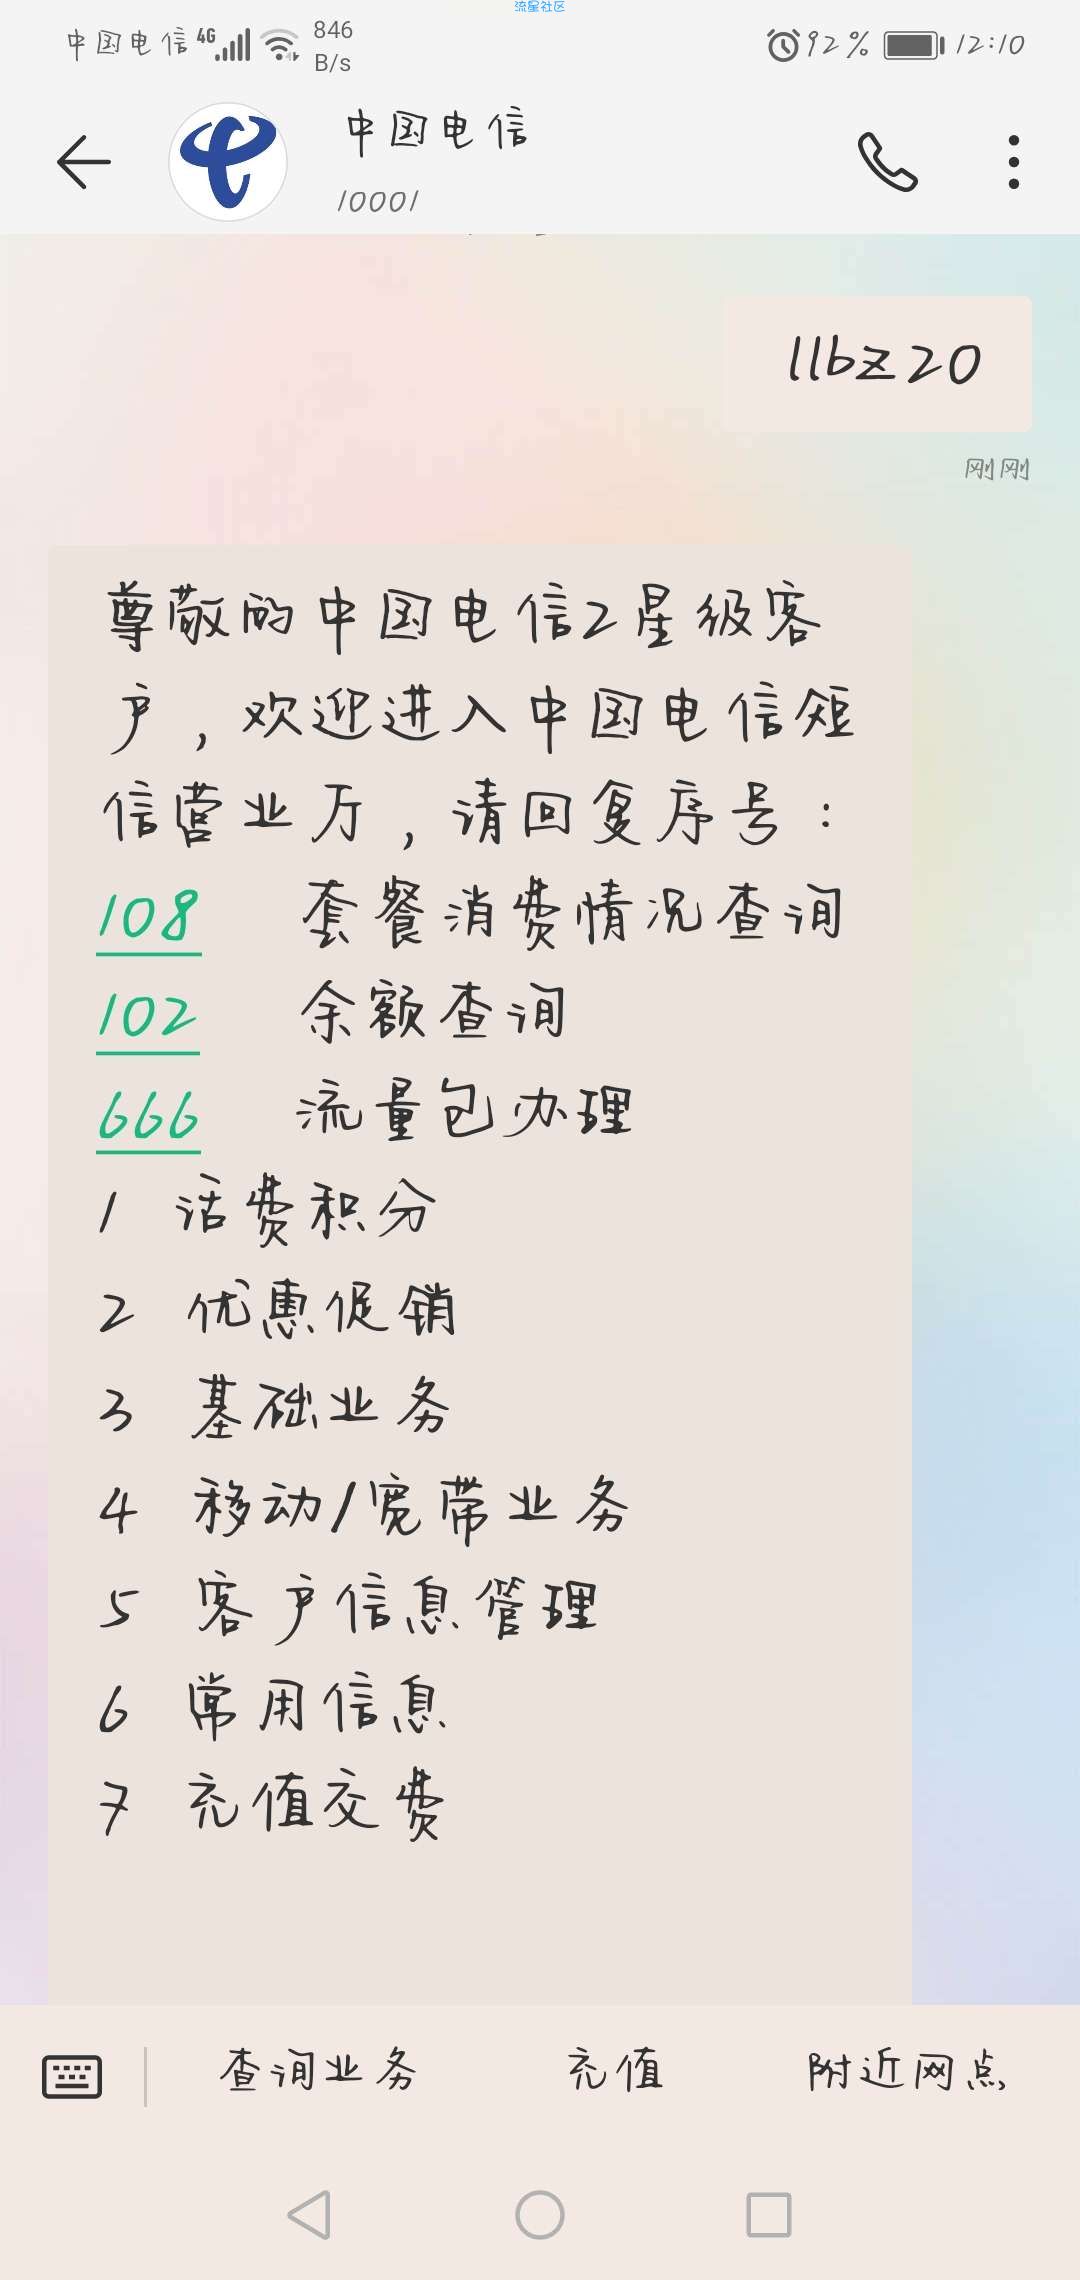 流星社区
中国电信 4G 846 B/s 92% 12:10
中国电信
10001
llbz20
刚刚
尊敬的中国电信2星级客
户，欢迎进入中国电信短
信营业厅，请回复序号：
108 套餐消费情况查询
102 余额查询
666 流量包办理
1 话费积分
2 优惠促销
3 基础业务
4 移动/宽带业务
5 客户信息管理
6 常用信息
7 充值交费
查询业务 充值 附近网点